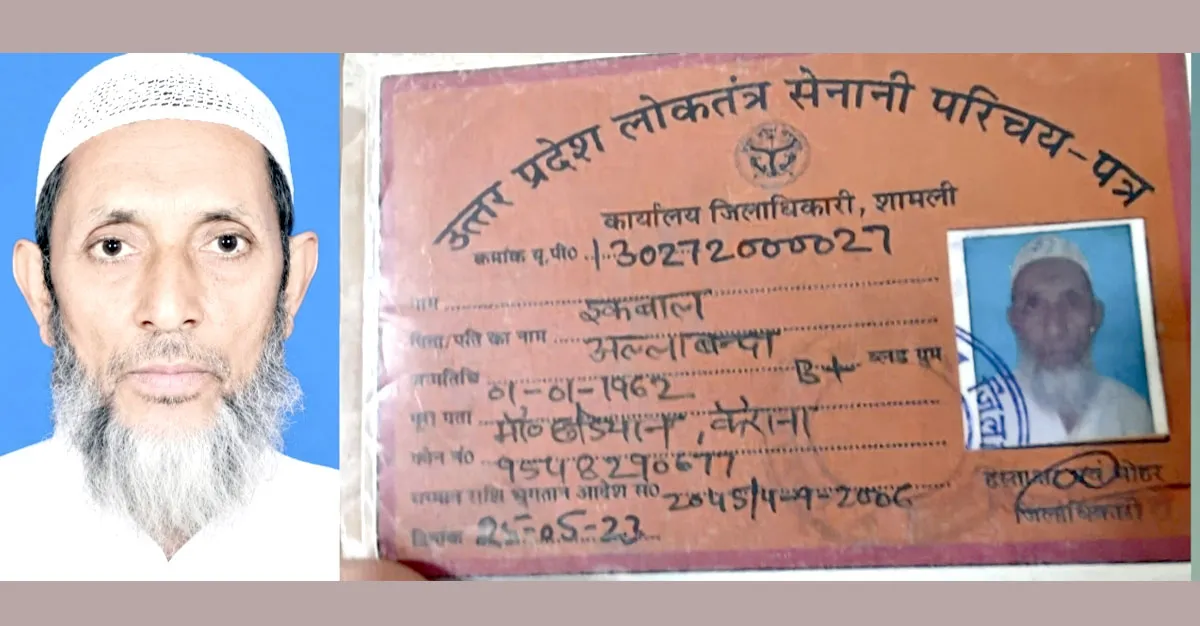 उत्तर प्रदेश लोकतंत्र सेनानी परिचय-पत्र
कार्यालय जिलाधिकारी, शामली
क्रमांक यू.पी० 130272000027
नाम इकबाल
पिता/पति का नाम अल्लाबन्दा
जन्मतिथि 01-01-1962 B+ ब्लड ग्रुप
पूरा पता मौ०, कैराना
फोन नं० 9548290677
सम्मान राशि भुगतान आदेश सं० 2045/4-9-2006
दिनांक 25-05-23
मोहर
जिलाधिकारी